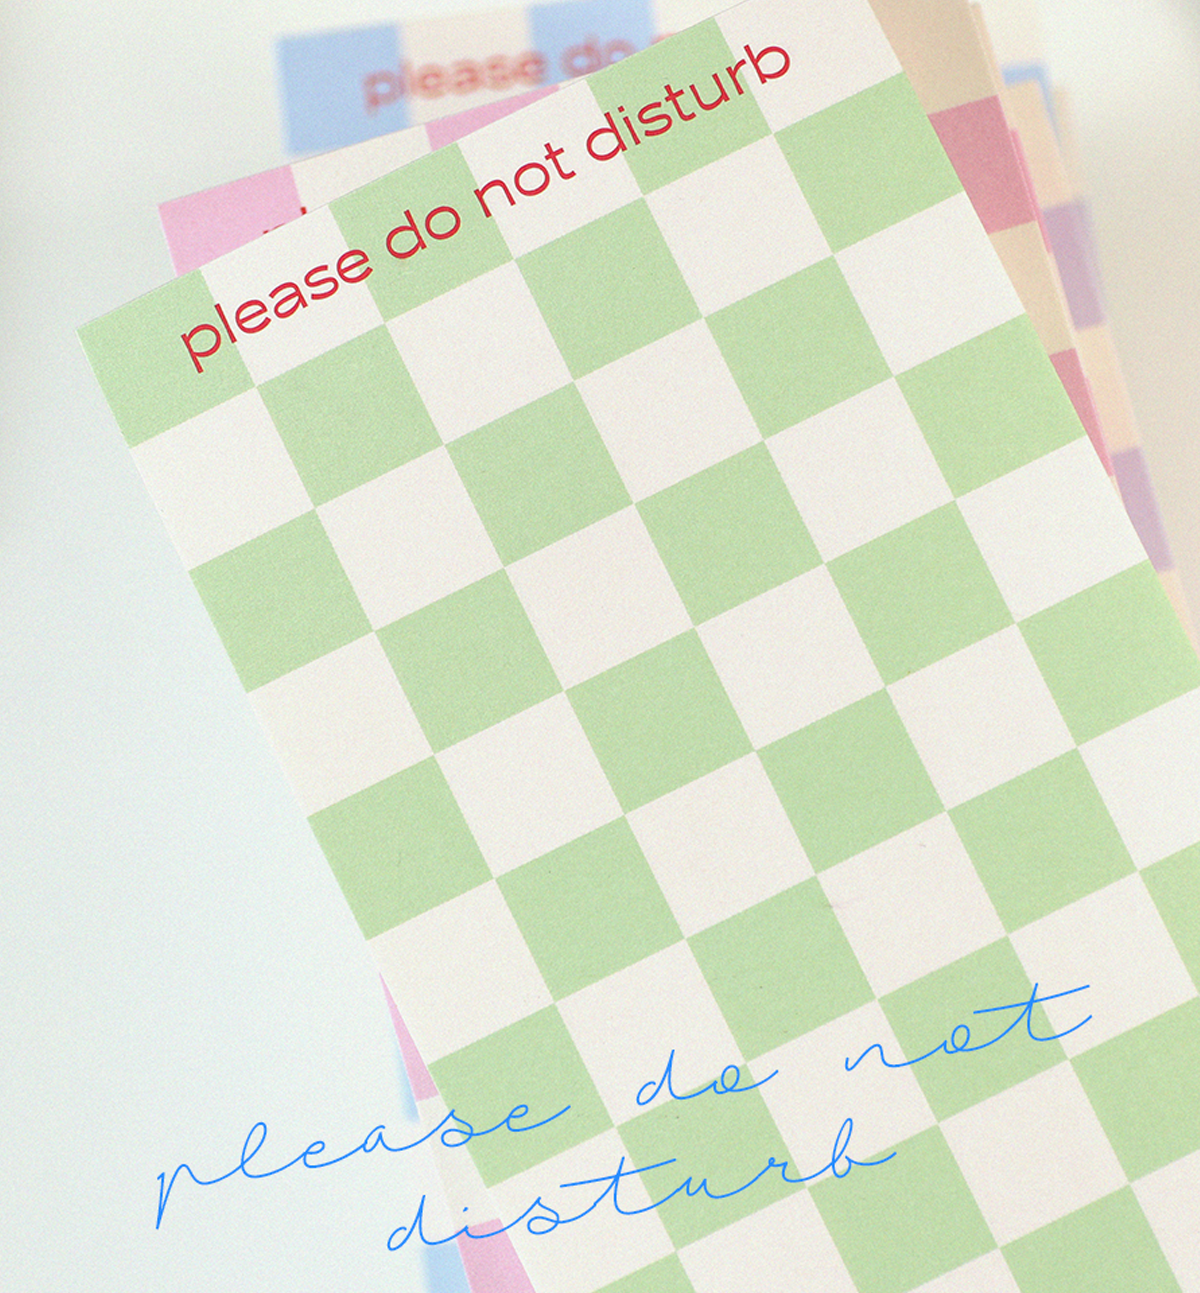 please do
please do not disturb
please do not
disturb